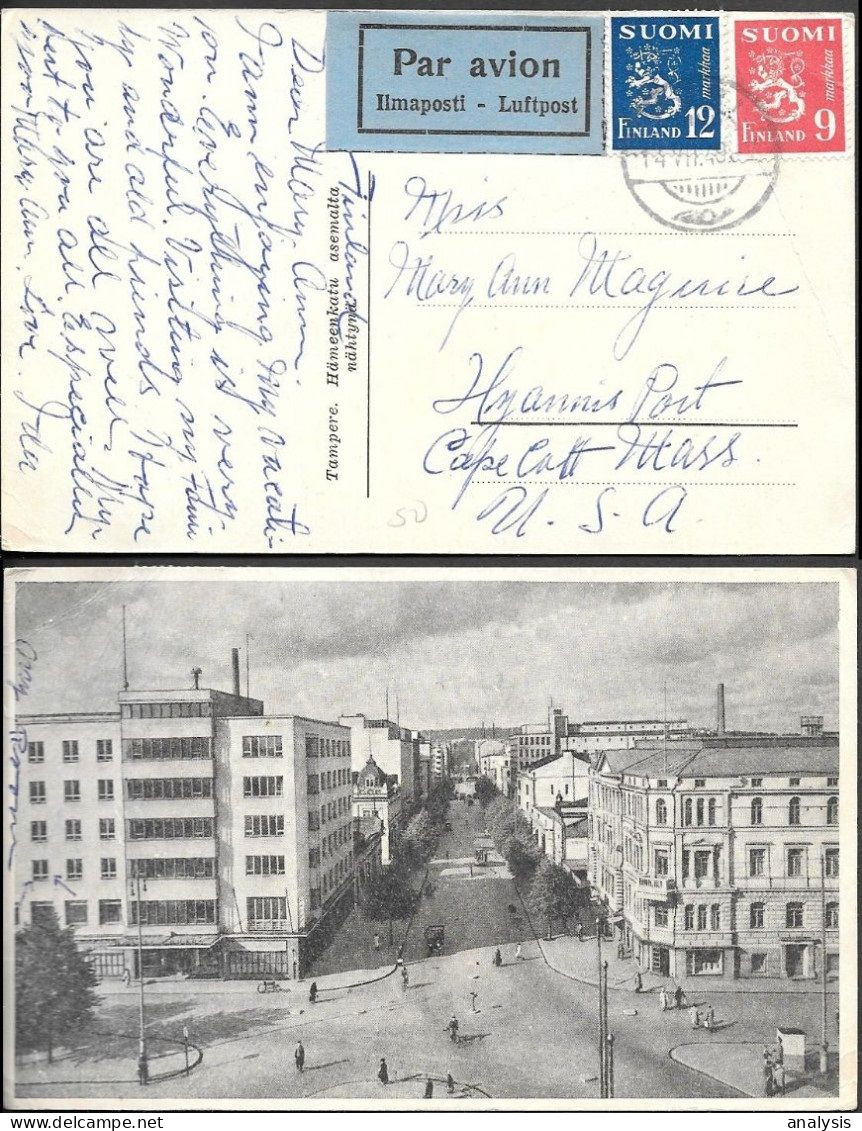 Par avion
Ilmaposti - Luftpost
SUOMI
markkaa
FINLAND 12
SUOMI
markkaa
FINLAND 9
14.VII.48
Finland
Dear Mary Ann.
I am enjoying my vacati-
ion. Everything is very
Wonderful. Visiting my fami
ly and old friends. Hope
you are all well. My
best to you all. Especially
Mary Ann. Love.
Tampere. Hämeenkatu asemalta
nähtynä.
Miss
Mary Ann Maguire
Hyannis Port
Cape Cott Mass.
U. S. A.
50
analysis